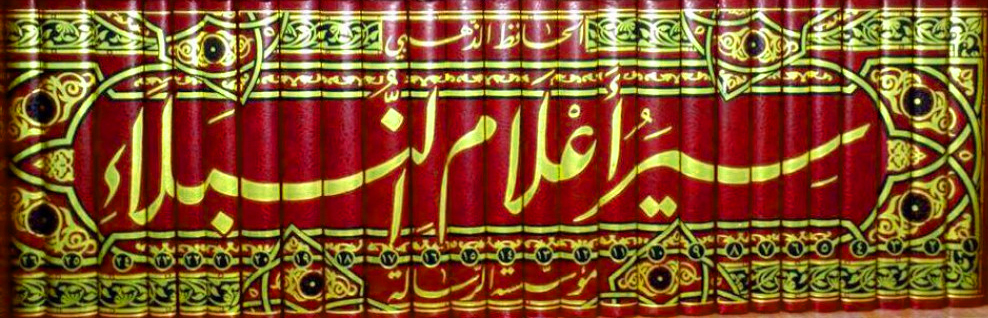 الحافظ الذهبي
سِيَرُ أَعْلَامِ النُّبَلَاءِ
٢٥ ٢٤ ٢٣ ٢٢ ٢١ ٢٠ ١٩ ١٨ ١٧ ١٦ ١٥ ١٤ ١٣ ١٢ ١١ ١٠ ٩ ٨ ٧ ٦ ٥ ٤ ٣ ٢ ١
مؤسسة الرسالة